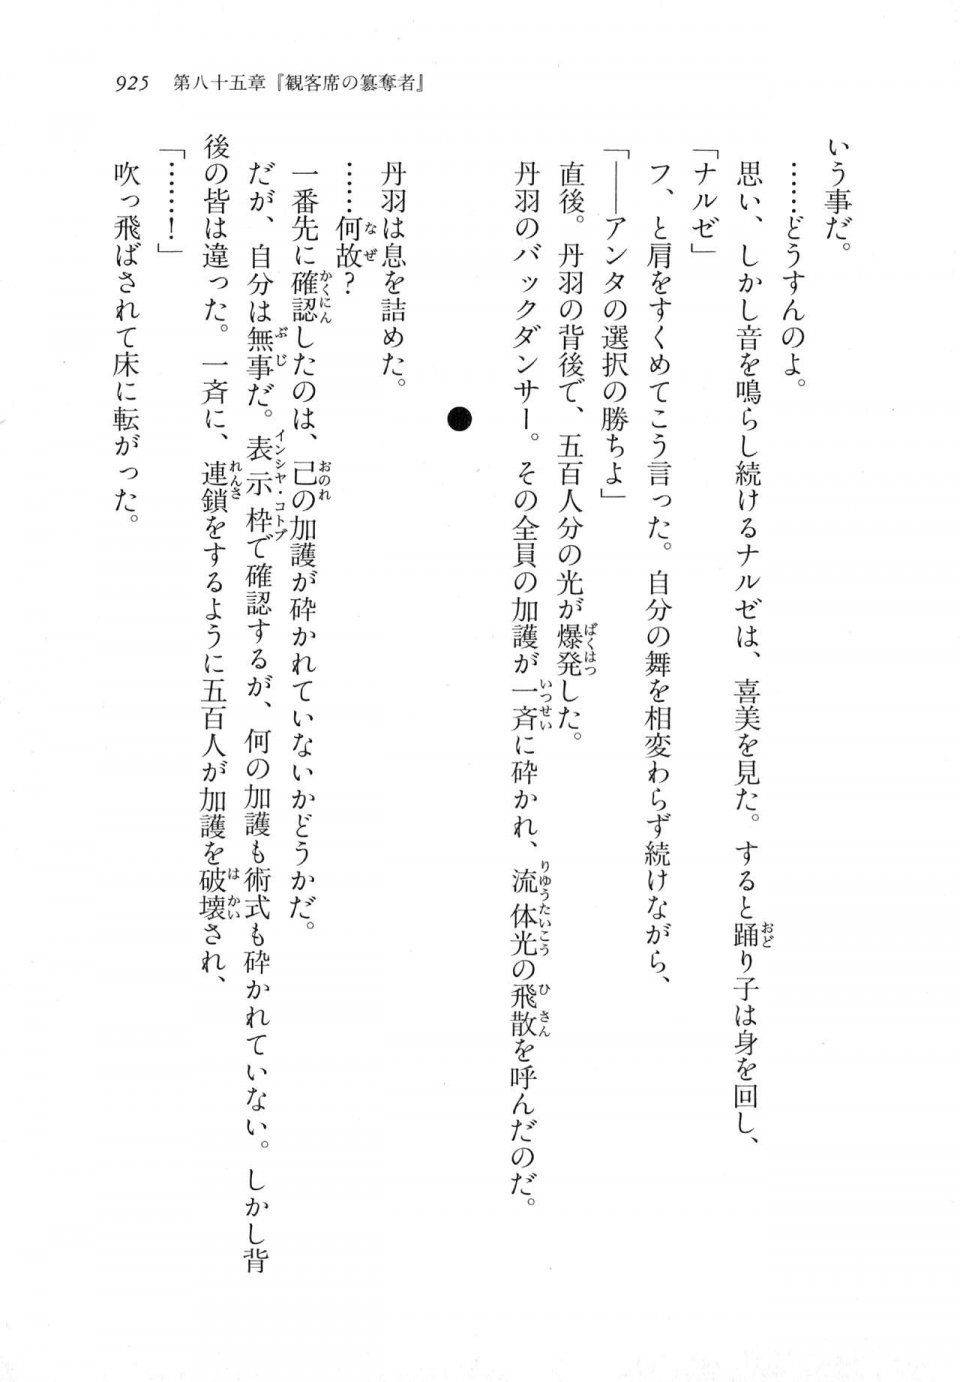 925　第八十五章『観客席の簒奪者』
いう事だ。
……どうすんのよ。
思い、しかし音を鳴らし続けるナルゼは、喜美を見た。すると踊り子は身を回し、
「ナルゼ」
フ、と肩をすくめてこう言った。自分の舞を相変わらず続けながら、
「――アンタの選択の勝ちよ」
直後。丹羽の背後で、五百人分の光が爆発した。
丹羽のバックダンサー。その全員の加護が一斉に砕かれ、流体光の飛散を呼んだのだ。
●
丹羽は息を詰めた。
……何故？
一番先に確認したのは、己の加護が砕かれていないかどうかだ。
だが、自分は無事だ。表示枠で確認するが、何の加護も術式も砕かれていない。しかし背
後の皆は違った。一斉に、連鎖をするように五百人が加護を破壊され、
「……！」
吹っ飛ばされて床に転がった。